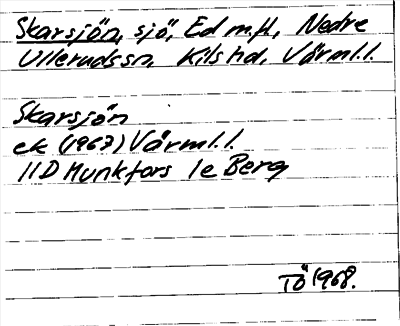 Skarsjön, sjö, Ed m.fl., Nedre
Ullerudssn, Kils hd, Värml.l.
Skarsjön
ek (1967) Värml.l.
11D Munkfors 1e Berg
TÖ 1968.